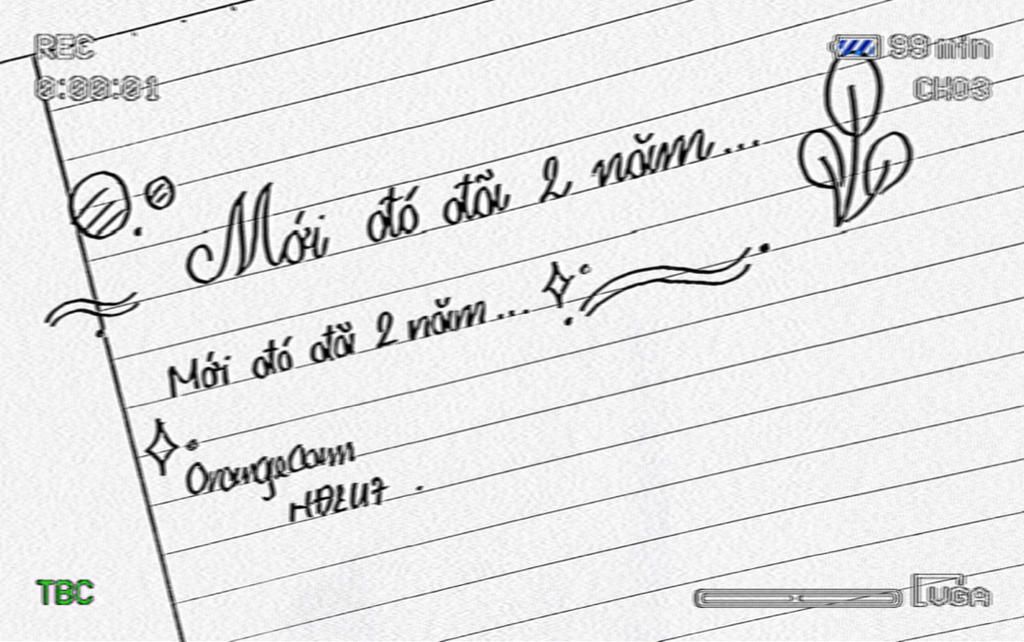 REC
99 min
0:00:01
CH03
Mới đó đã 2 năm...
Mới đó đã 2 năm...
OrangeCam
TBC
VGA